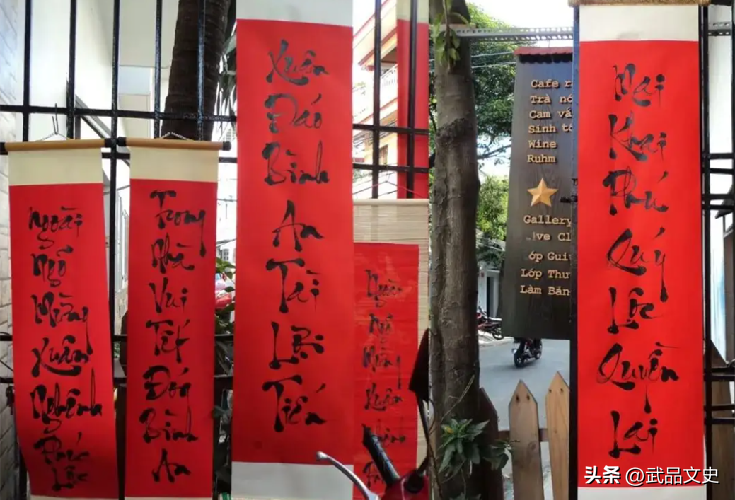 Ngoài Ngõ Mừng Xuân Nghênh Phúc Lộc
Trong Nhà Vui Tết Đón Bình An
Xuân Đáo Bình An Tài Lợi Tiến
Ngoài Ngõ Mừng Xuân
Cafe
Trà
Cam
Sinh tố
Wine
Ruhm
Gallery
Lớp
Làm
Mai Khai Phú Quý Lộc Quyền Lai
头条 @武品文史